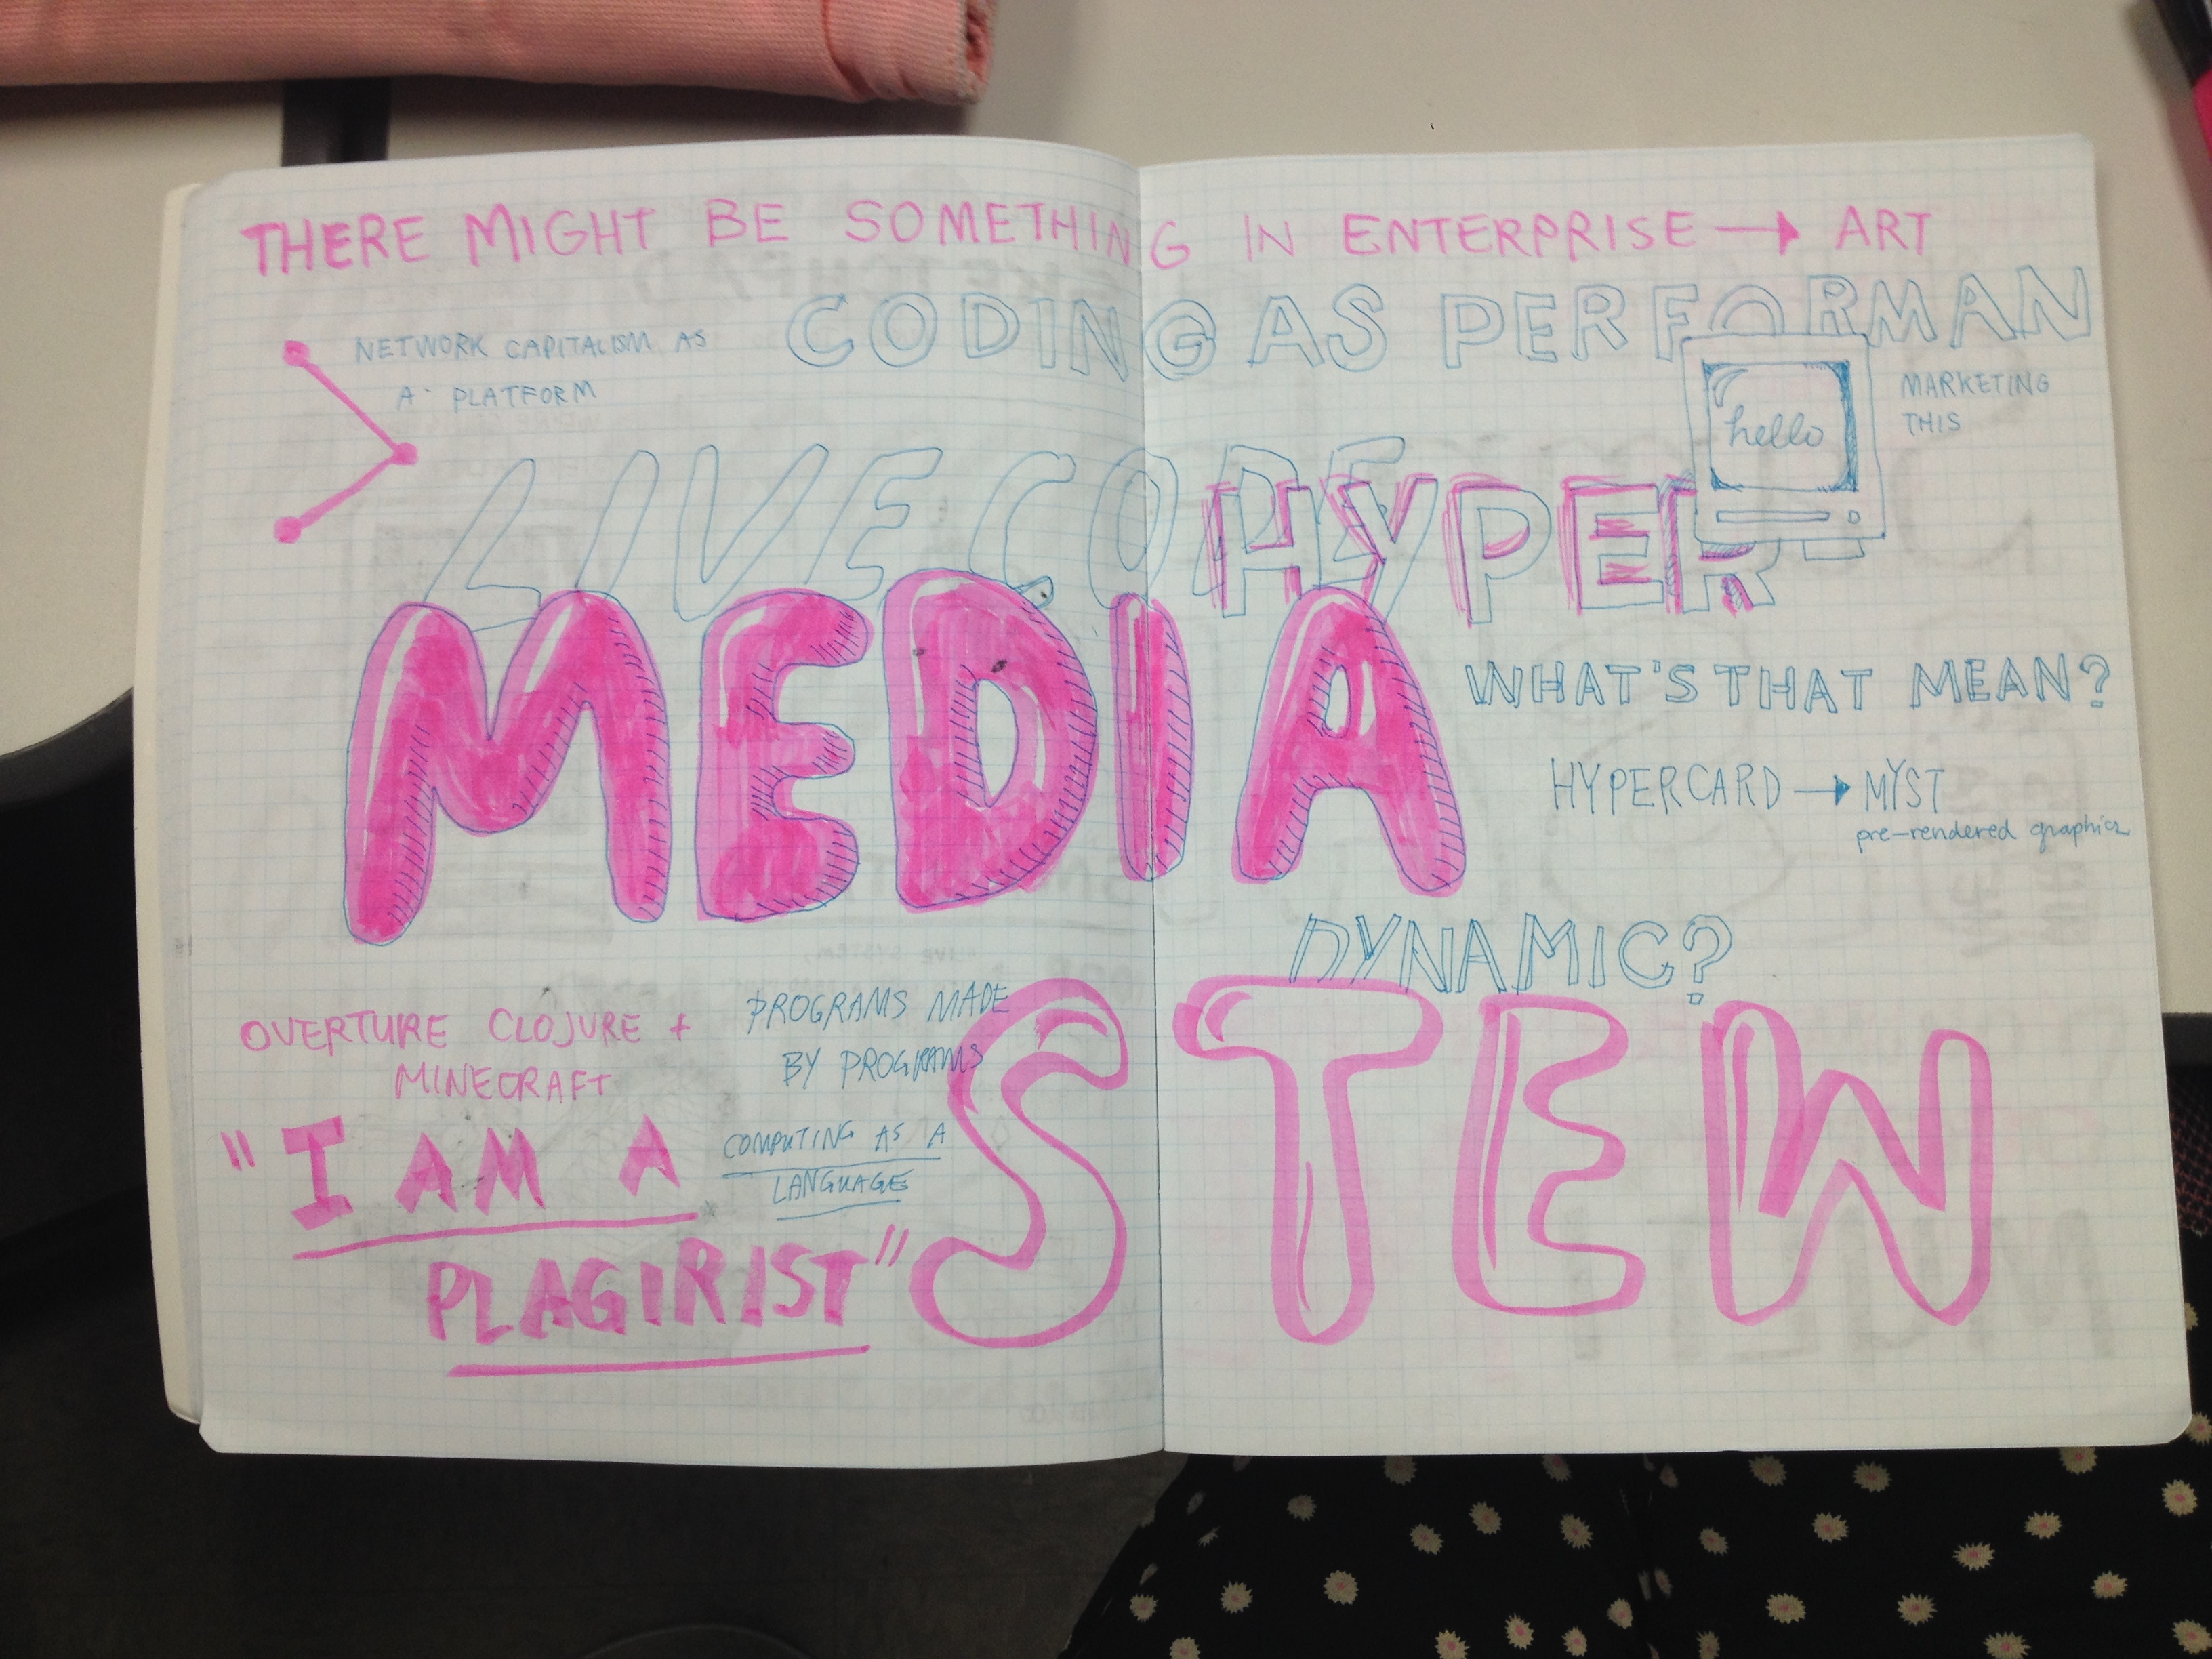 THERE MIGHT BE SOMETHING IN ENTERPRISE → ART
CODING AS PERFORMAN
NETWORK CAPITALISM AS
A PLATFORM
hello
MARKETING
THIS
LIVE CODE
HYPER
MEDIA
WHAT'S THAT MEAN?
HYPERCARD → MYST
pre-rendered graphics
DYNAMIC?
STEW
OVERTURE CLOJURE +
MINECRAFT
PROGRAMS MADE
BY PROGRAMS
COMPUTING AS A
LANGUAGE
"I AM A
PLAGIRIST"